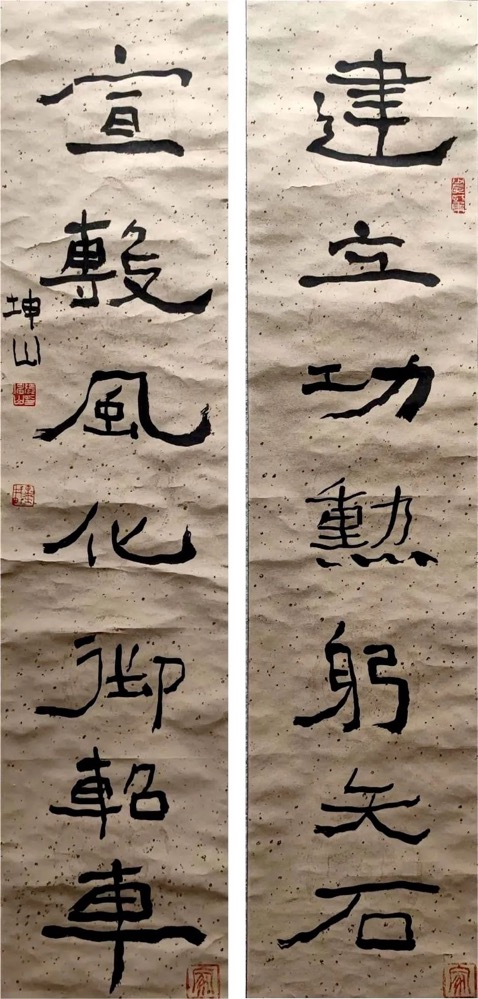 建立功勳躬矢石
宣敷風化御軺車
坤山